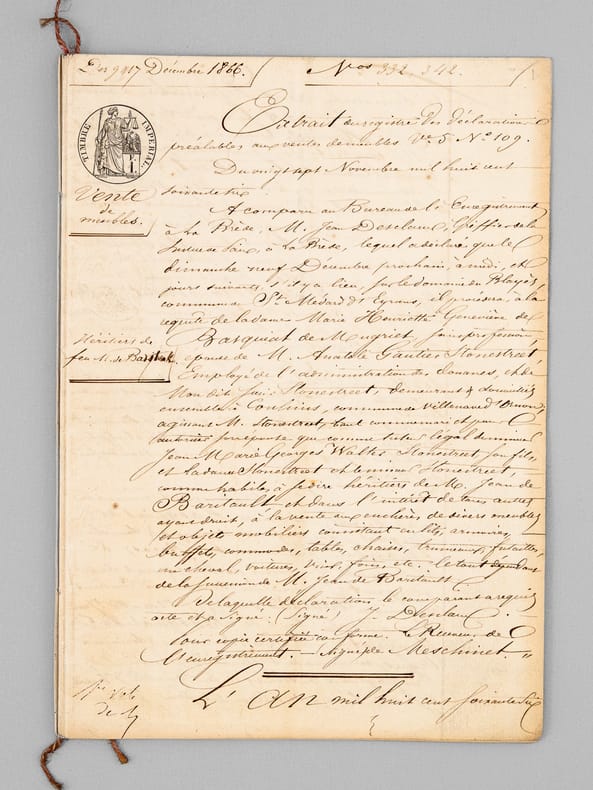 Des 9 & 17 Décembre 1866.
Nos 332. 342.
TIMBRE IMPERIAL
Vente
de
meubles.
Héritiers de
feu M. de Baritault
Extrait du registre des déclarations
préalables aux ventes de meubles Vol. 5 No 109.
Du vingt sept Novembre mil huit cent
soixante six
A comparu au Bureau de l'Enregistrement
à La Brède, M. Jean Desclaux, Greffier de la
Justice de Paix, à La Brède, lequel a déclaré que le
dimanche neuf Décembre prochain, à midi, et
jours suivants, s'il y a lieu, sur le domaine du Blayès
commune de St Médard d'Eyrans, il procédera, à la
requête de la dame Marie Henriette Geneviève de
Basquiat de Mugriet, sans profession,
épouse de M. Anatole Gautier Stonestreet,
Employé de l'administration des Douanes, et de
Mon dit sieur Stonestreet, demeurant & domiciliés
ensemble à Cousins, commune de Villenave d'Ornon,
agissant M. Stonestreet, tant comme mari et pour
autoriser son épouse que comme tuteur légal du mineur
Jean Marie Georges Walter Stonestreet son fils,
et la dame Stonestreet et le mineur Stonestreet,
comme habiles à se dire héritiers de M. Jean de
Baritault et dans l'intérêt de tous autres
ayans droit, à la vente aux enchères de divers meubles
et objets mobiliers consistant en lits, armoires,
buffets, commodes, tables, chaises, trumeaux, futailles,
un cheval, voitures, vins, foin, etc. le tout dépendant
de la succession de M. Jean de Baritault.
De laquelle déclaration le comparant a requis
acte et a signé. (Signé) J. Desclaux.
Pour copie certifiée conforme. Le Receveur de
l'enregistrement. — Signé de Meschinet. "
L'an mil huit cent soixante six